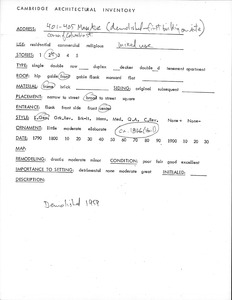 CAMBRIDGE ARCHITECTURAL INVENTORY
ADDRESS: 401-405 (demolished - first building on site)
USE: residential commercial religious mixed use
STORIES: 1 2 3 4 5
TYPE: single double row duplex decker double d tenement apartment
ROOF: hip gable flank mansard flat
MATERIAL: brick SIDING: original subsequent
PLACEMENT: narrow to street broad to street
ENTRANCE: flank front side front center
STYLE: None + None +
ORNAMENT: little moderate elaborate
DATE: 1790 1800 10 20 30 40 50 60 70 80 90 1900 10 20 30
MAP:
REMODELING: drastic moderate minor CONDITION: poor fair good excellent
IMPORTANCE TO SETTING: detrimental none moderate great INITIALED:
DESCRIPTION:
Demolished 1958